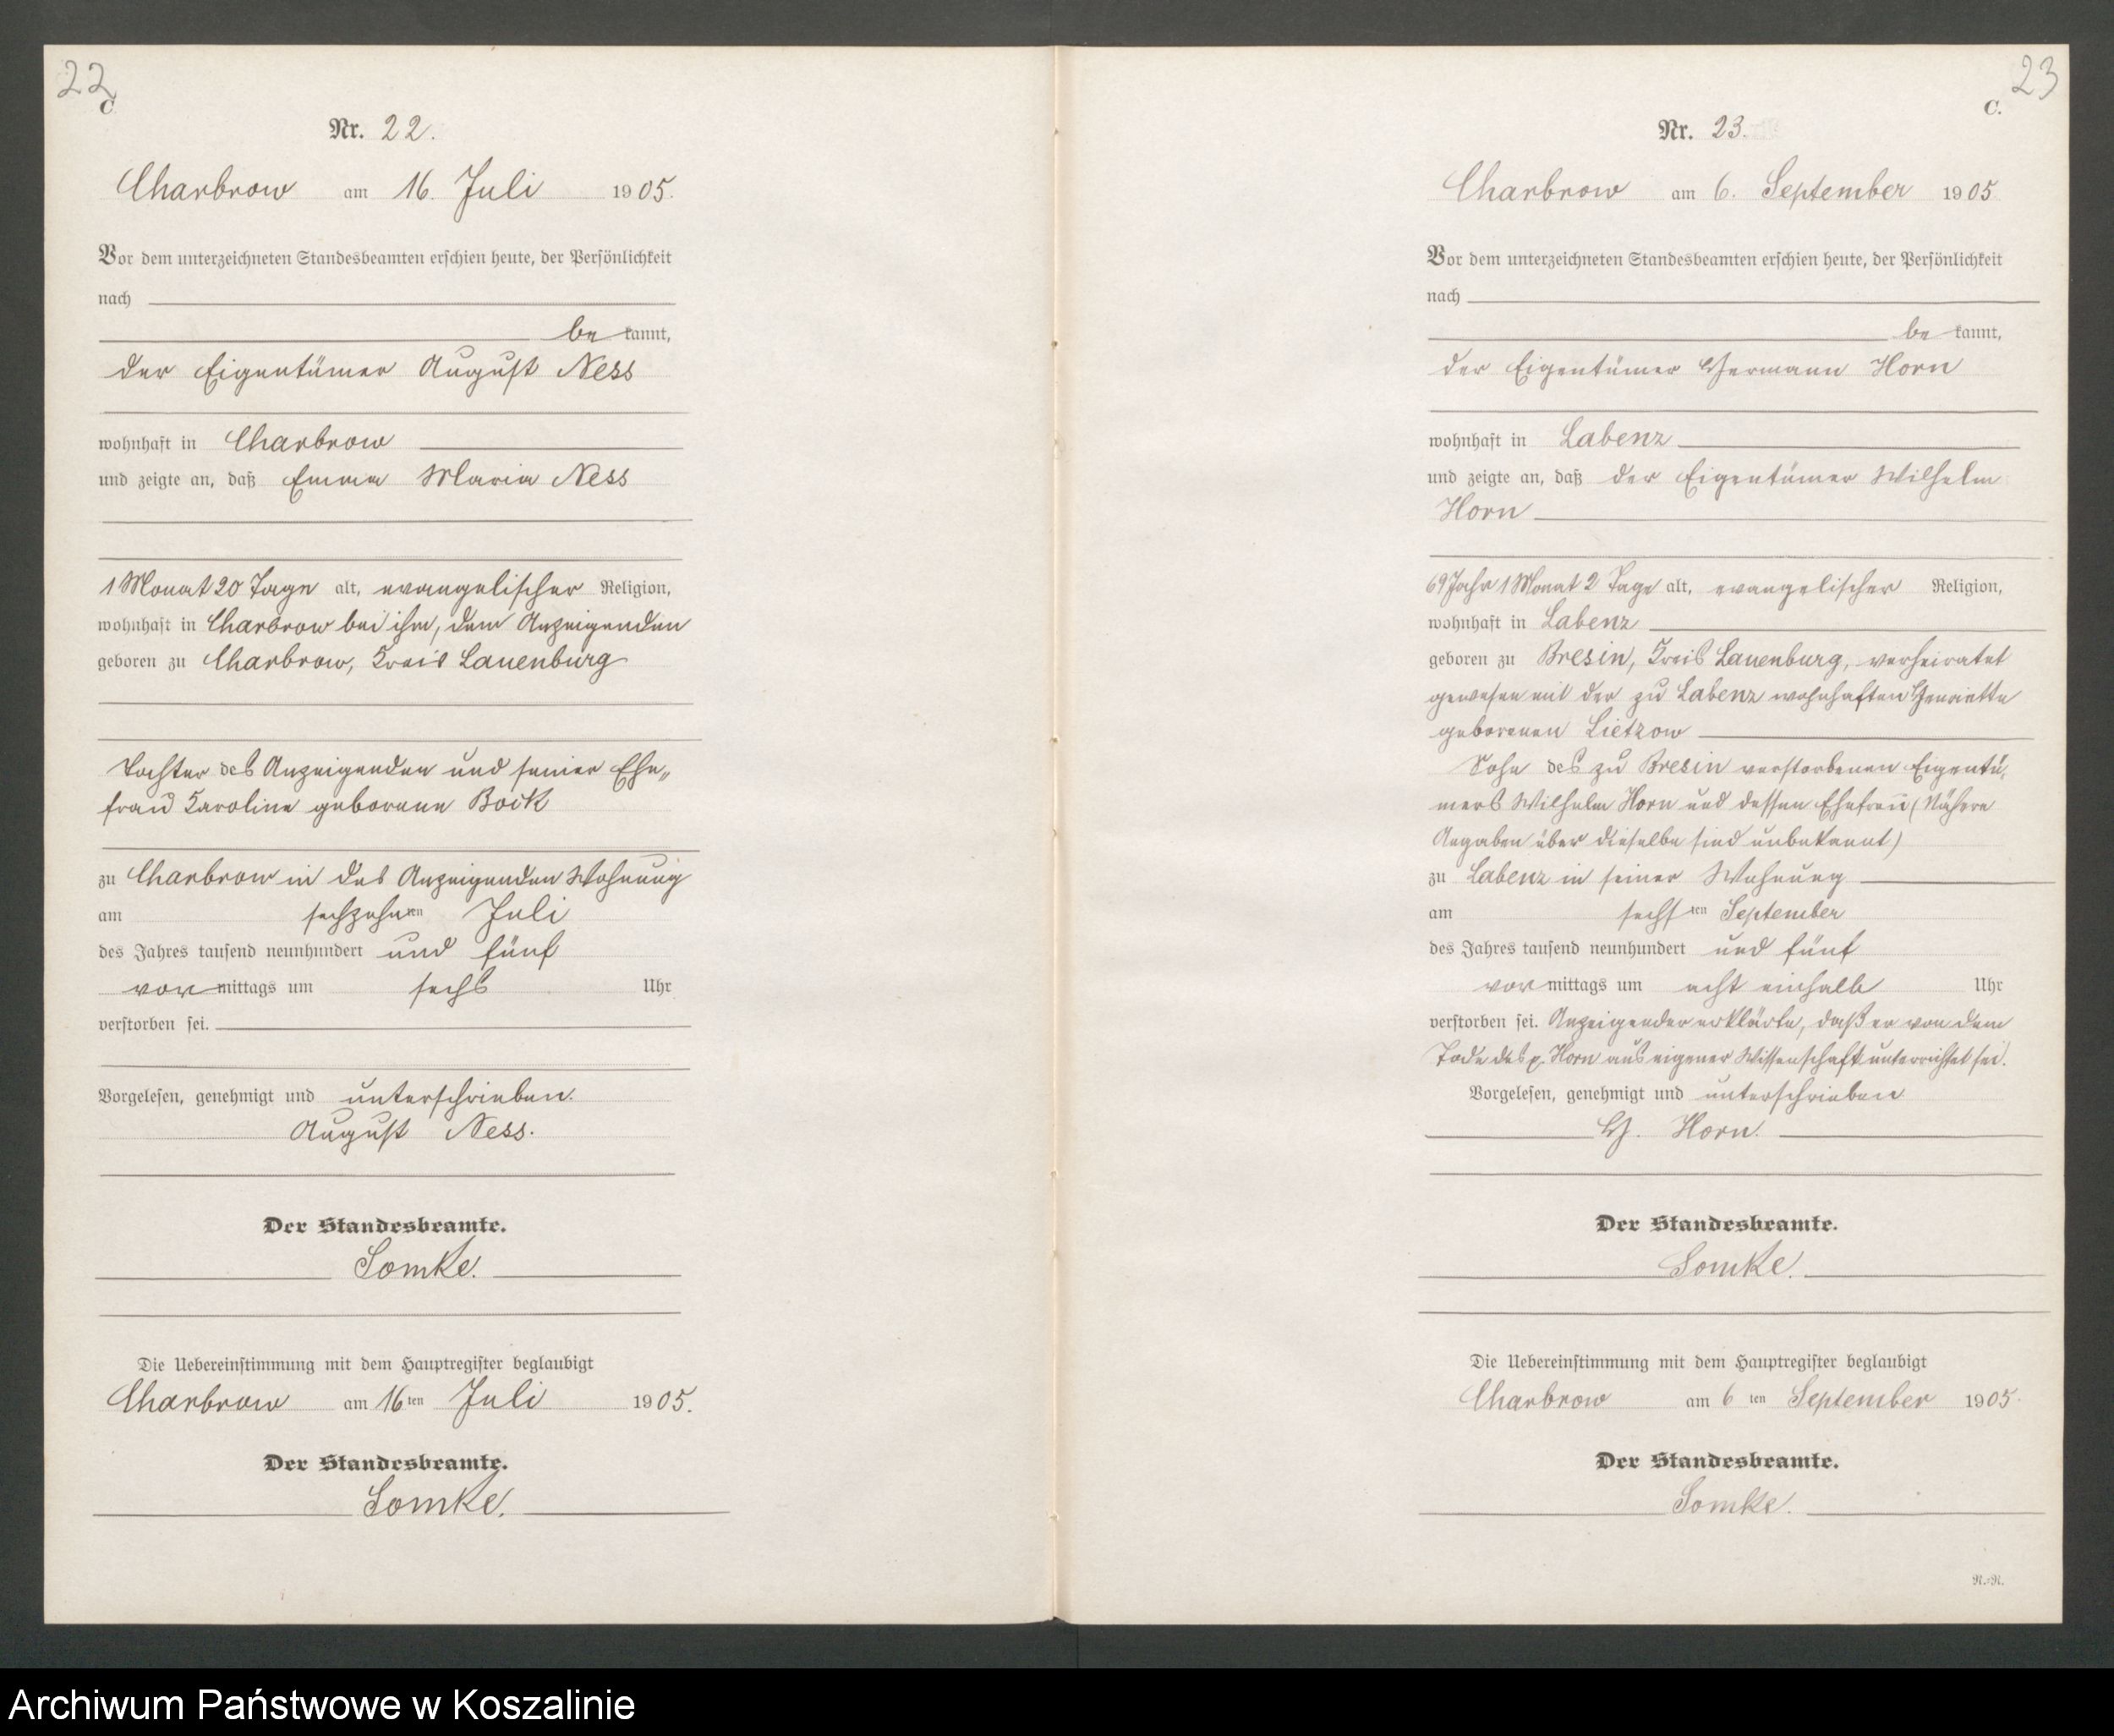 22
C
Nr. 22.
Charbrow am 16. Juli 1905.
Vor dem unterzeichneten Standesbeamten erschien heute, der Persönlichkeit
nach
be kannt,
der Eigentümer August Ness
wohnhaft in Charbrow
und zeigte an, daß Emma Maria Ness
1 Monat 20 Tage alt, evangelischer Religion,
wohnhaft in Charbrow bei ihm, dem Anzeigenden
geboren zu Charbrow, Kreis Lauenburg
Tochter des Anzeigenden und seiner Ehe„
frau Karoline geborene Bock
zu Charbrow in des Anzeigenden Wohnung
am sechzehnten Juli
des Jahres tausend neunhundert und fünf
vor mittags um sechs Uhr
verstorben sei.
Vorgelesen, genehmigt und unterschrieben.
August Ness.
Der Standesbeamte.
Somke.
Die Uebereinstimmung mit dem Hauptregister beglaubigt
Charbrow am 16ten Juli 1905.
Der Standesbeamte.
Somke.
23
C.
Nr. 23.
Charbrow am 6. September 1905
Vor dem unterzeichneten Standesbeamten erschien heute, der Persönlichkeit
nach
be kannt,
der Eigentümer Hermann Horn
wohnhaft in Labenz
und zeigte an, daß der Eigentümer Wilhelm
Horn
69 Jahr 1 Monat 2 Tage alt, evangelischer Religion,
wohnhaft in Labenz
geboren zu Bresin, Kreis Lauenburg, verheiratet
gewesen mit der zu Labenz wohnhaften Henriette
geborenen Lietzow
Sohn des zu Bresin verstorbenen Eigentü„
mers Wilhelm Horn und dessen Ehefrau (Nähere
Angaben über dieselbe sind unbekannt)
zu Labenz in seiner Wohnung
am sechsten September
des Jahres tausend neunhundert und fünf
vor mittags um acht einhalb Uhr
verstorben sei. Anzeigender erklärte, daß er von dem
Tode des p. Horn aus eigener Wissenschaft unterrichtet sei.
Vorgelesen, genehmigt und unterschrieben
H. Horn.
Der Standesbeamte.
Somke.
Die Uebereinstimmung mit dem Hauptregister beglaubigt
Charbrow am 6 ten September 1905.
Der Standesbeamte.
Somke.
R.-R.
Archiwum Państwowe w Koszalinie